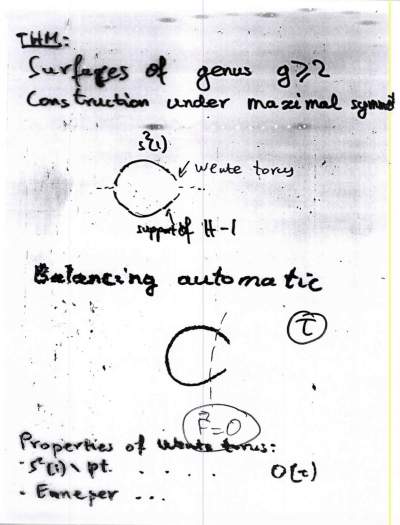 THM:
Surfaces of genus g⩾2
Construction under maximal symmet
S²(1)
Wente torus
support of H-1
Balancing automatic
τ
F⃗=0
Properties of Wente torus:
- S²(1)∖pt. . . . . O(τ)
- Enneper ...